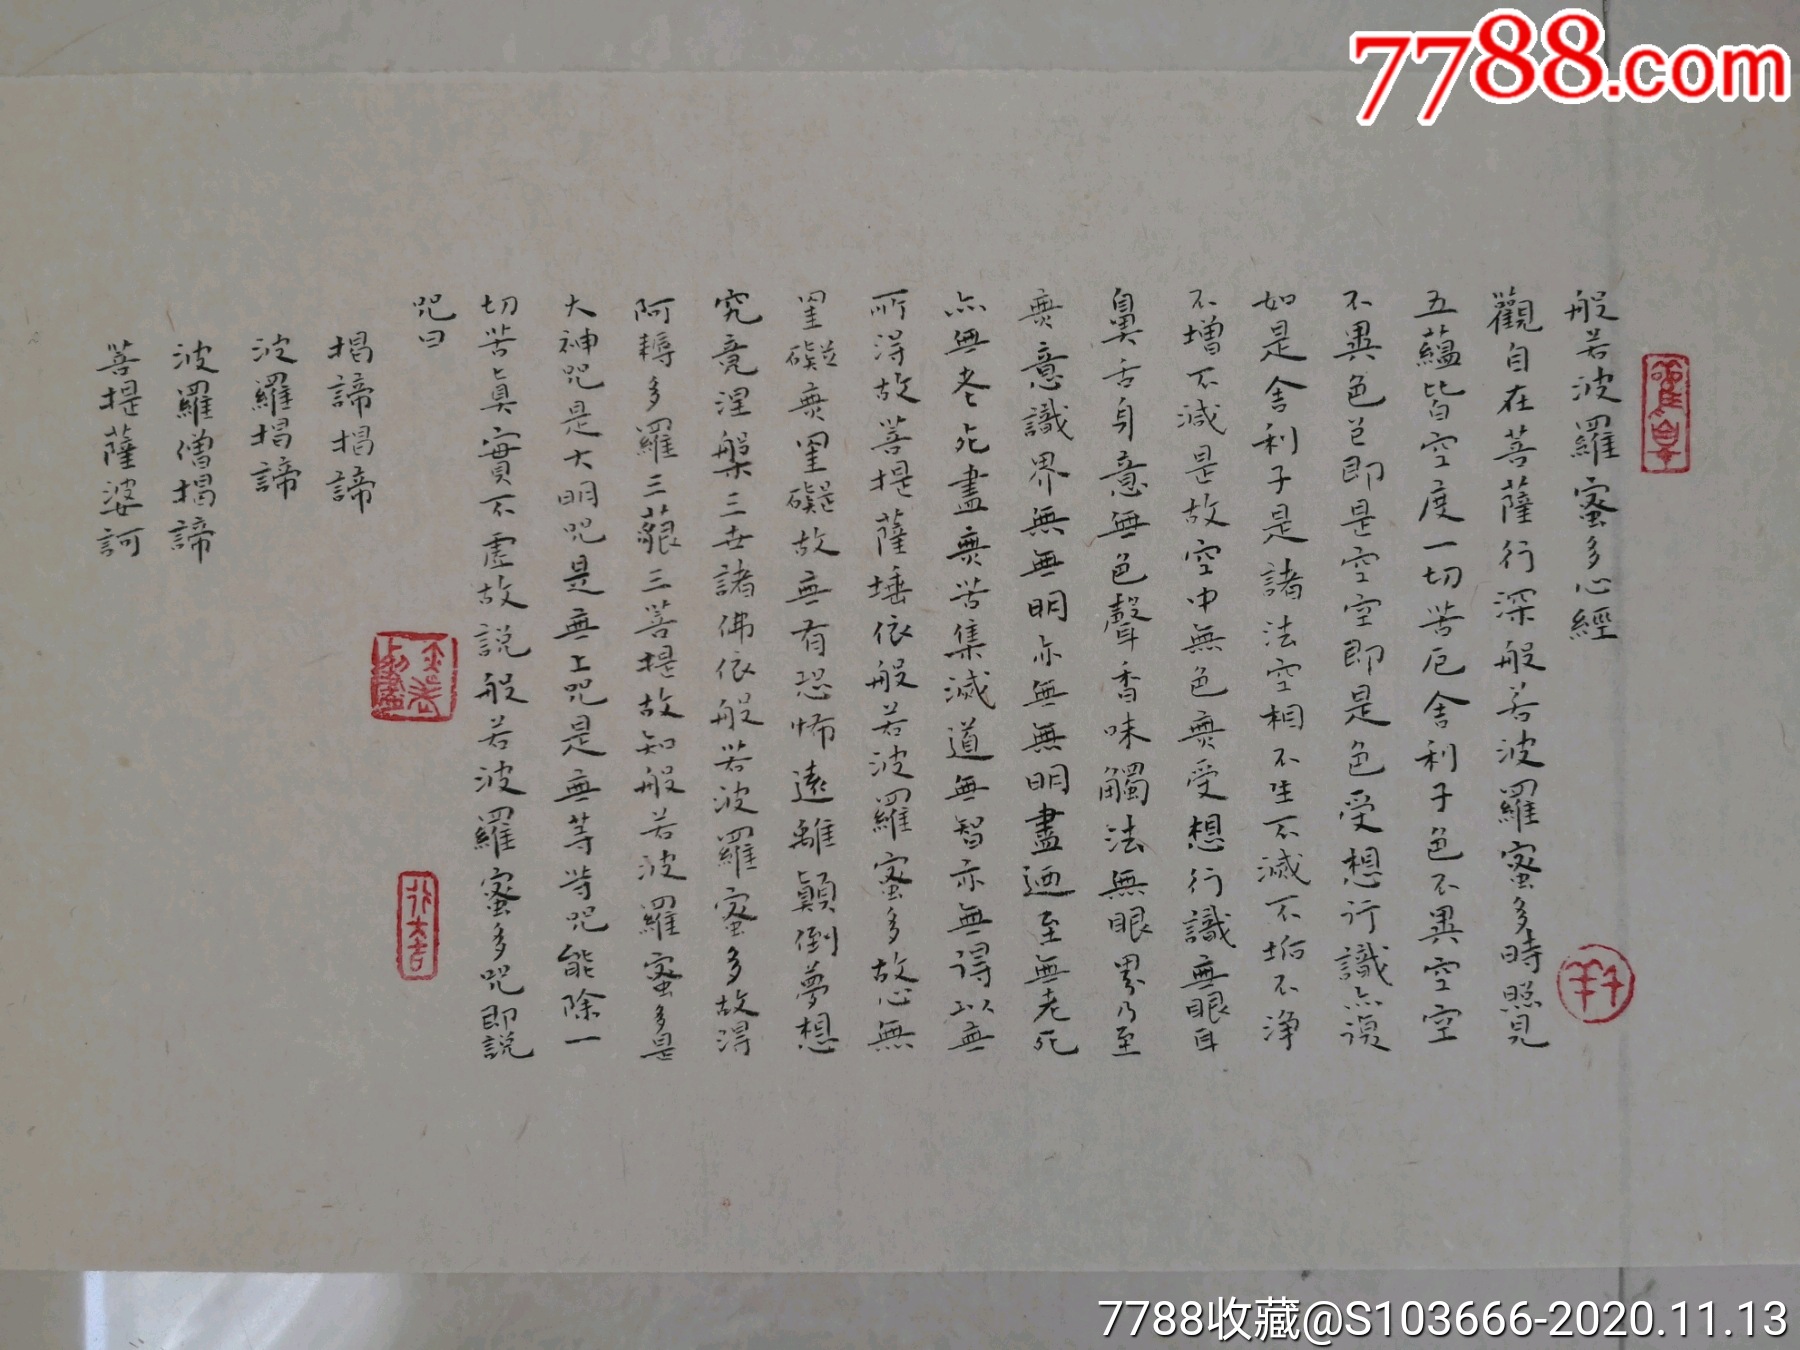 7788.com
般若波羅蜜多心經
觀自在菩薩行深般若波羅蜜多時照見
五蘊皆空度一切苦厄舍利子色不異空空
不異色色即是空空即是色受想行識亦復
如是舍利子是諸法空相不生不滅不垢不淨
不增不減是故空中無色無受想行識無眼耳
鼻舌身意無色聲香味觸法無眼界乃至
無意識界無無明亦無無明盡廼至無老死
亦無老死盡無苦集滅道無智亦無得以無
所得故菩提薩埵依般若波羅蜜多故心無
罣礙無罣礙故無有恐怖遠離顛倒夢想
究竟涅槃三世諸佛依般若波羅蜜多故得
阿耨多羅三藐三菩提故知般若波羅蜜多是
大神咒是大明咒是無上咒是無等等咒能除一
切苦真實不虛故説般若波羅蜜多咒即説
咒曰
揭諦揭諦
波羅揭諦
波羅僧揭諦
菩提薩婆訶
大吉
7788收藏@S103666-2020.11.13